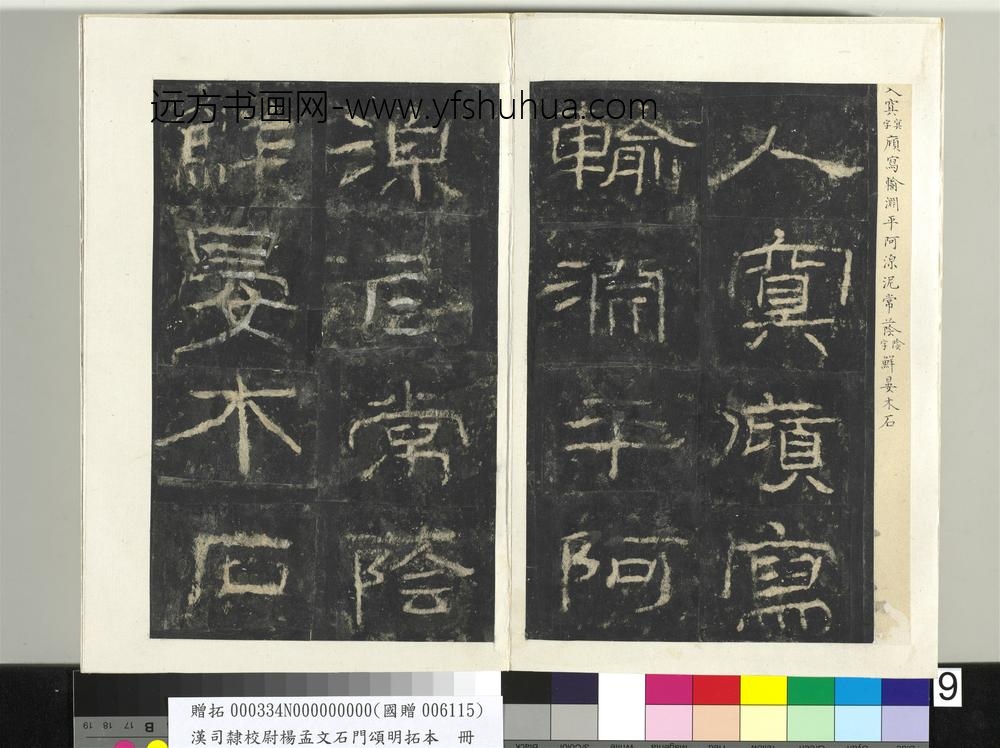 远方书画网-www.yfshuhua.com
入寘字寘廎寫輸淵平阿涼泥常蔭字陰鮮晏木石
人寘廎寫
輸淵平阿
涼泥常蔭
鮮晏木石
9
贈拓 000334N000000000(國贈 006115)
漢司隸校尉楊孟文石門頌明拓本 冊
19 18 17 16 15
B